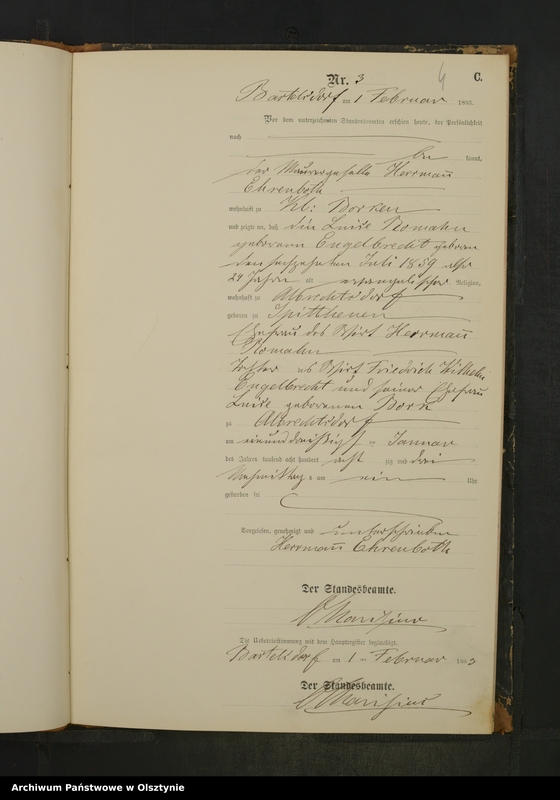 Nr. 3
4
C.
Bartelsdorf am 1 Februar 1883.
Vor dem unterzeichneten Standesbeamten erschien heute, der Persönlichkeit
nach
kannt,
der Maurergeselle Herrmann
Ehrenboth
wohnhaft zu Kl: Borken
und zeigte an, daß die Luise Romahn
geborene Engelbrecht geboren
den Juli 1859 also
Jahre alt evangelischer Religion,
wohnhaft zu Albrechtsdorf
geboren zu Spitthenen
Ehefrau des Wirt Herrmann
Romahn
Tochter des Wirt Friedrich Wilhelm
Engelbrecht und seiner Ehefrau
Luise geborenen Bork
zu Albrechtsdorf
am einunddreißigsten Januar
des Jahres tausend acht hundert acht zig und drei
Nachmittags um ein Uhr
gestorben sei
Vorgelesen, genehmigt und unterschrieben
Herrmann Ehrenboth
Der Standesbeamte.
Die Uebereinstimmung mit dem Hauptregister beglaubigt.
Bartelsdorf am 1 Februar 1883
Der Standesbeamte.
Archiwum Państwowe w Olsztynie